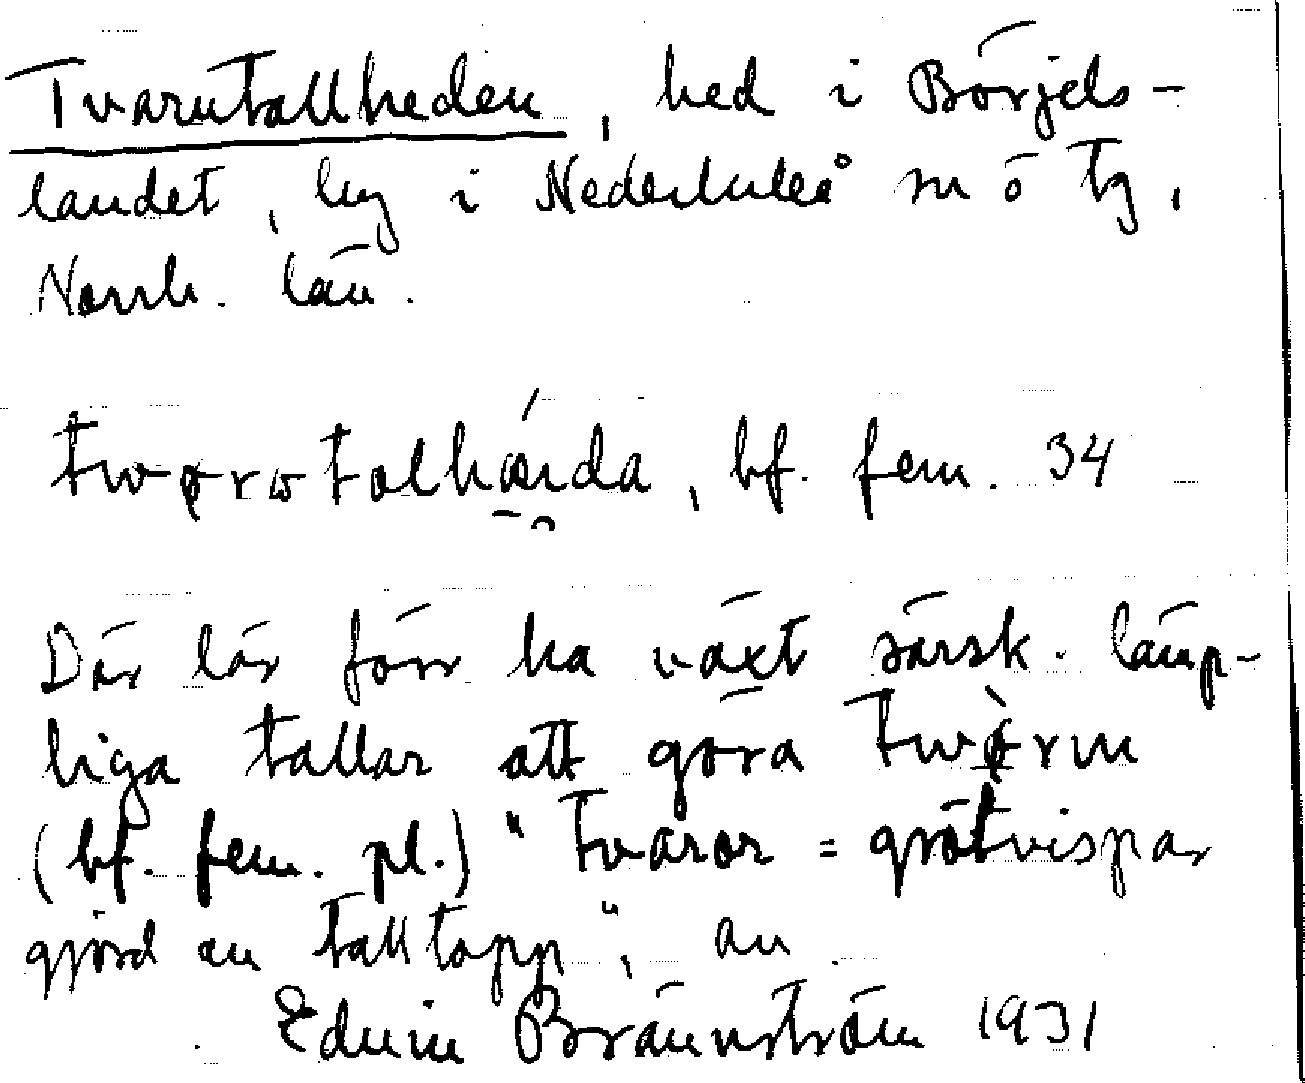 Tvarutallheden, hed i Börjels-
landet, by i Nederluleå sn ö tg,
Norrb. län.
bf. fem. 34
Där lär förr ha växt särsk. lämp-
liga tallar att göra
(bf. fem. pl.) "tvaror = grötvispar
gjord av talltopp",
Edvin Brännström 1931